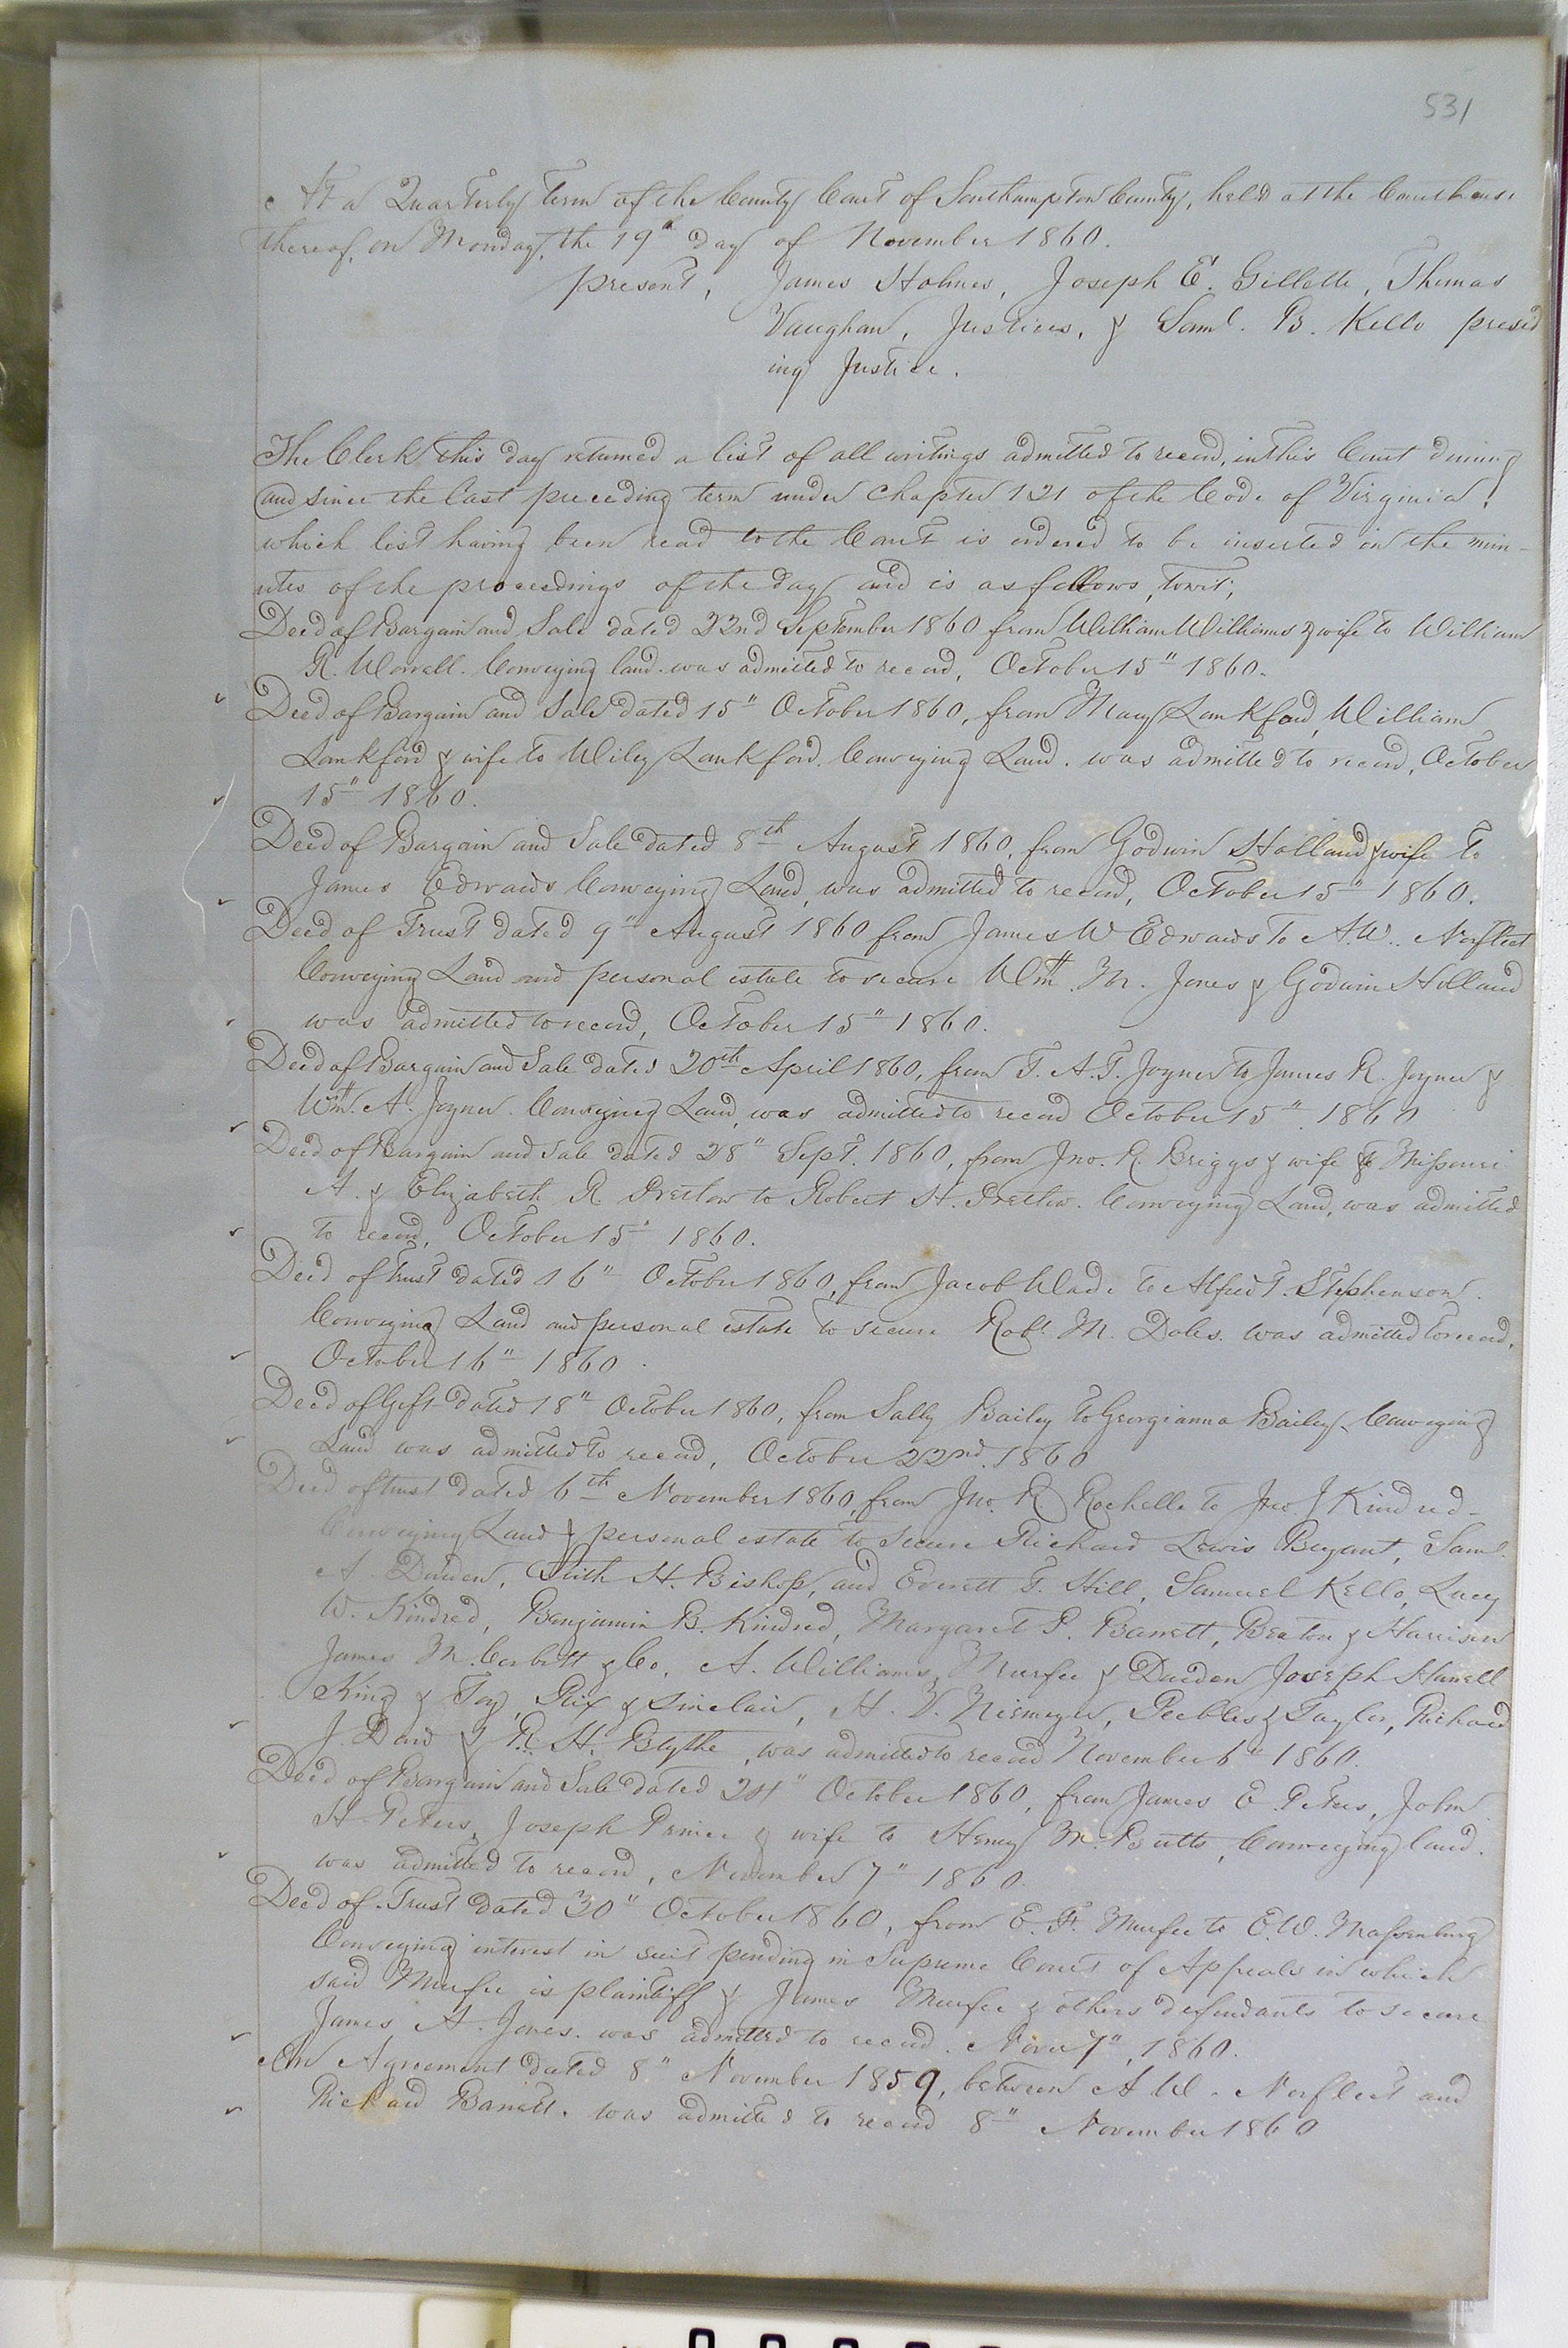 531
At a Quarterly term of the County Court of Southampton County, held at the Courthouse
thereof, on Monday, the 19th day of November 1860.
present, James Holmes, Joseph E. Gillette, Thomas
Vaughan, Justices, & Saml. B. Kello presid
ing Justice.
The Clerk this day returned a list of all writings admitted to record, in this Court during
and since the last preceding term under Chapter 121 of the Code of Virginia,
which list having been read to the Court is ordered to be inserted in the min-
utes of the proceedings of the day and is as follows, towit;
Deed of Bargain and Sale dated 22nd September 1860 from William Williams & wife to William
R. Worrell. Conveying land. was admitted to record, October 15" 1860.
Deed of Bargain and Sale dated 15" October 1860, from Mary Lankford, William
Lankford & wife to Wiley Lankford. Conveying Land. was admitted to record, October
15" 1860.
Deed of Bargain and Sale dated 8th August 1860, from Godwin Holland & wife to
James Edwards Conveying Land, was admitted to record, October 15" 1860.
Deed of Trust dated 9" August 1860 from James W Edwards to A.W. Norfleet
Conveying Land and personal estate to secure Wm. M. Jones & Godwin Holland
was admitted to record, October 15" 1860.
Deed of Bargain and Sale dated 20th April 1860, from T. A. T. Joyner to James R. Joyner &
Wm. A. Joyner. Conveying Land, was admitted to record October 15" 1860
Deed of Bargain and Sale dated 28" Sept. 1860, from Jno. R. Briggs & wife & Missouri
A. & Elizabeth R Pretlow to Robert H. Pretlow. Conveying Land, was admitted
to record, October 15" 1860.
Deed of Trust dated 16" October 1860, from Jacob Wade to Alfred T. Stephenson.
Conveying Land and personal estate to secure Robt. M. Doles. was admitted to record,
October 16" 1860.
Deed of Gift dated 18" October 1860, from Sally Bailey to Georgianna Bailey. Conveying
Land was admitted to record, October 22nd. 1860
Deed of trust dated 6th November 1860, from Jno. R Rochelle to Jno J Kindred-
Conveying Land & personal estate to secure Richard Lewis Bryant, Saml.
A. Darden, H. Bishop, and Everett T. Hill, Samuel Kello, Lucy
W. Kindred, Benjamin B. Kindred, Margaret P. Barrett, Beaton & Harrison
James M. Corbett & Co. A. Williams, Murfee & Darden Joseph Harrell
King & Toy, Rix & Sinclair, H. V. Niemeyer, Peebles & Taylor, Richard
J. Dard & R. H. Blythe, was admitted to record November 6" 1860.
Deed of Bargain and Sale dated 24" October 1860, from James E. Peters, John
H Peters, Joseph Prince & wife to Henry M. Butts, Conveying land.
was admitted to record, November 7" 1860.
Deed of Trust dated 30" October 1860, from E. H. Murfee to E.W. Massenburg
Conveying interest in suit pending in Supreme Court of Appeals in which
said Murfee is plaintiff & James Murfee & others defendants to secure
James A. Jones. was admitted to record. Novr 7", 1860.
An Agreement dated 8" November 1859, between A W. Norfleet and
Richard Barrett. was admitted to record 8" November 1860